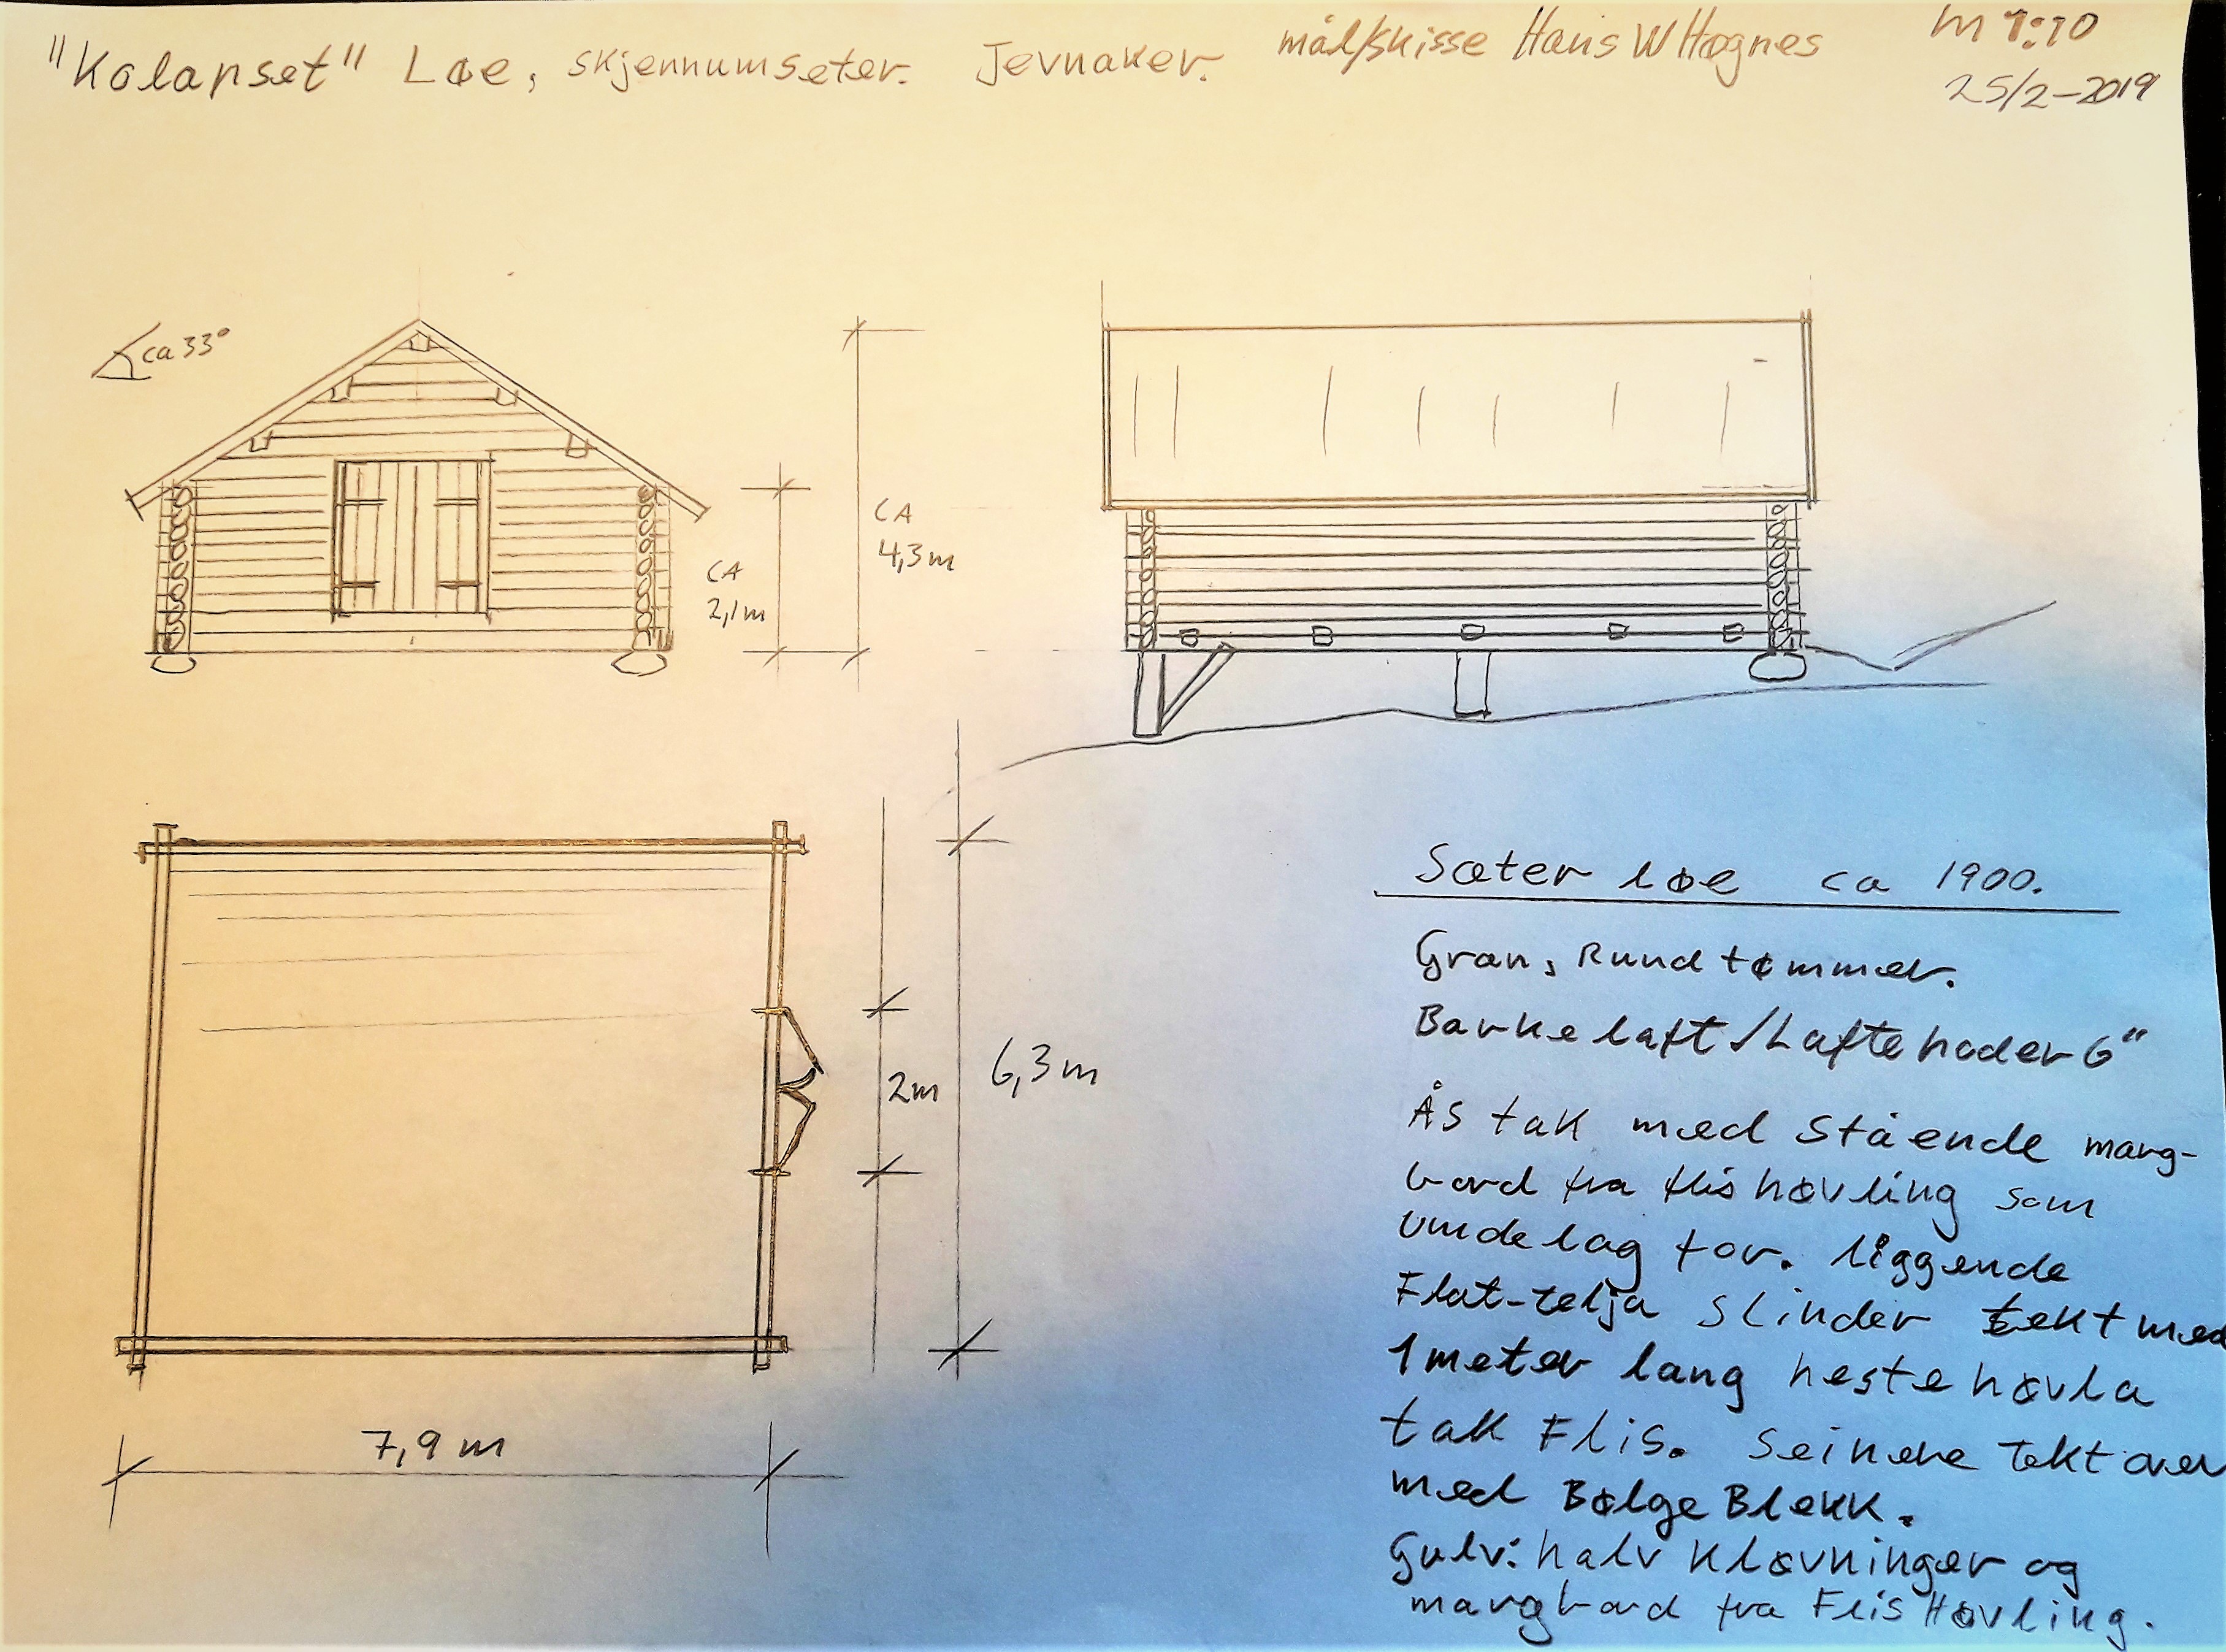 "Kolapset" Løe, skjennumseter. Jevnaker. målskisse Hans W Høgnes M 1:10
25/2-2019
ca 33°
CA
4,3m
CA
2,1m
2m
6,3m
7,9m
Sæter løe ca 1900.
Gran, Rundtømmer.
Barkelaft/Laftehoder 6"
Ås tak med stående marg-
bord fra flishøvling som
underlag for. liggende
Flat-telja slinder tekt med
1 meter lang hestehøvla
tak Flis. Seinere Tekt over
med BølgeBlekk.
Gulv: halv kløvninger og
margbord fra FlisHøvling.